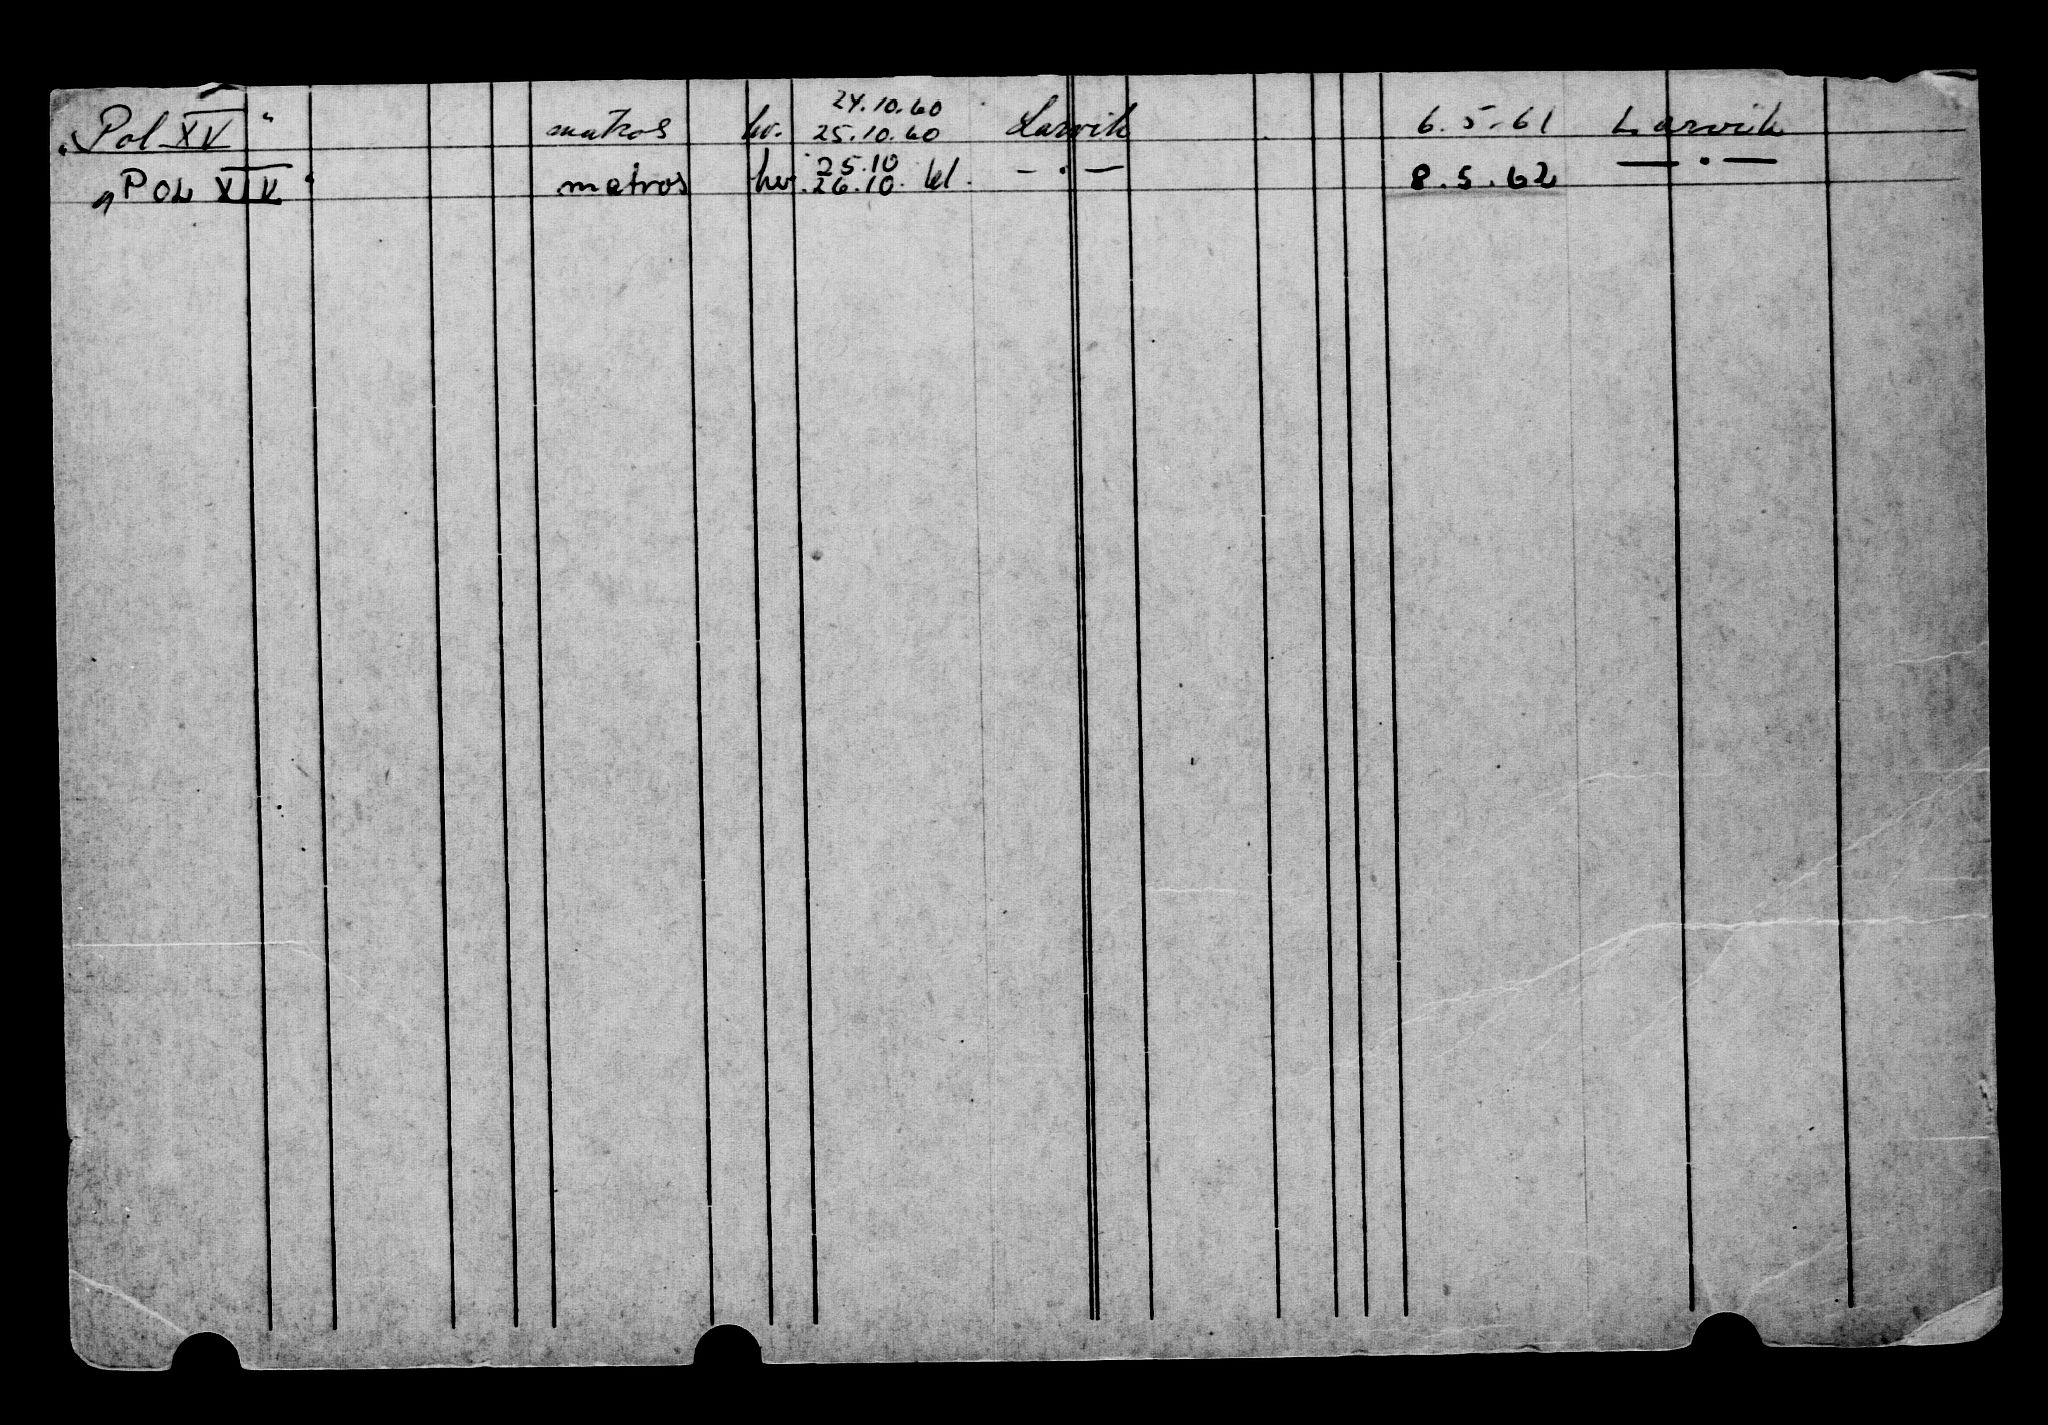 „Pol XV" matros hv. 24.10.60 25.10.60 Larvik 6.5.61 Larvik
„POL XIV" matros hv. 25.10 26.10. 61. — · — 8.5.62 — · —